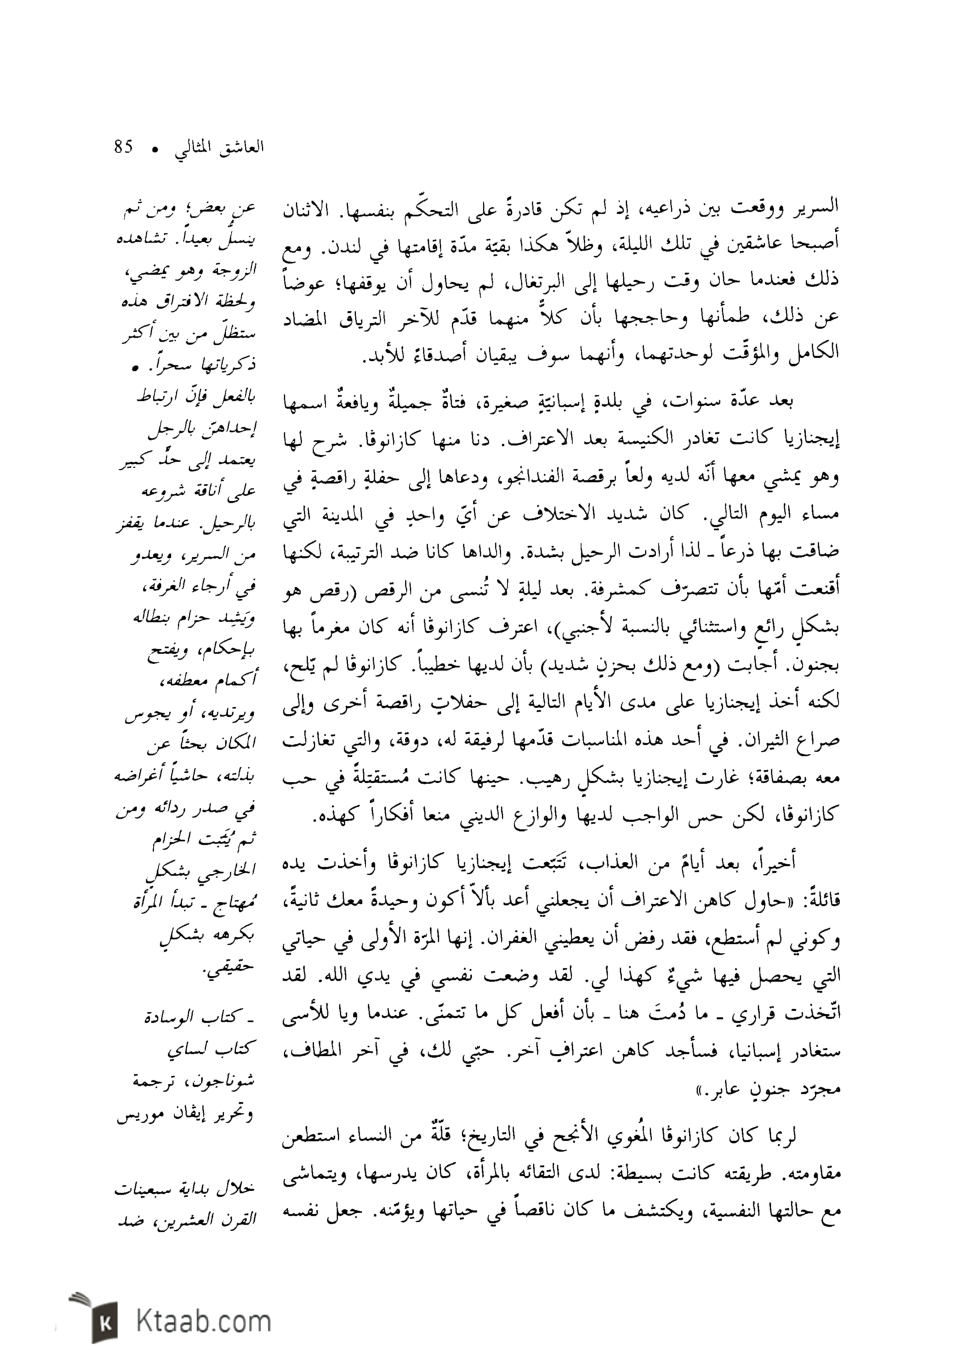 العاشق المثالي • 85
السرير ووقعت بين ذراعيه، إذ لم تكن قادرةً على التحكّم بنفسها. الاثنان
أصبحا عاشقين في تلك الليلة، وظلاّ هكذا بقيّة مدّة إقامتها في لندن. ومع
ذلك فعندما حان وقت رحيلها إلى البرتغال، لم يحاول أن يوقفها؛ عوضاً
عن ذلك، طمأنها وحاججها بأن كلاًّ منهما قدّم للآخر الترياق المضاد
الكامل والمؤقّت لوحدتهما، وأنهما سوف يبقيان أصدقاءً للأبد.
بعد عدّة سنوات، في بلدةٍ إسبانيّةٍ صغيرة، فتاةٌ جميلةٌ ويافعةٌ اسمها
إيجنازيا كانت تغادر الكنيسة بعد الاعتراف. دنا منها كازانوڤا. شرح لها
وهو يمشي معها أنّه لديه ولعاً برقصة الفندانجو، ودعاها إلى حفلةٍ راقصةٍ في
مساء اليوم التالي. كان شديد الاختلاف عن أيّ واحدٍ في المدينة التي
ضاقت بها ذرعاً ـ لذا أرادت الرحيل بشدة. والداها كانا ضد الترتيبة، لكنها
أقنعت أمّها بأن تتصرّف كمشرفة. بعد ليلةٍ لا تُنسى من الرقص (رقص هو
بشكلٍ رائعٍ واستثنائي بالنسبة لأجنبي)، اعترف كازانوڤا أنه كان مغرماً بها
بجنون. أجابت (ومع ذلك بحزنٍ شديد) بأن لديها خطيباً. كازانوڤا لم يّلح،
لكنه أخذ إيجنازيا على مدى الأيام التالية إلى حفلاتٍ راقصة أخرى وإلى
صراع الثيران. في أحد هذه المناسبات قدّمها لرفيقة له، دوقة، والتي تغازلت
معه بصفاقة؛ غارت إيجنازيا بشكلٍ رهيب. حينها كانت مُستقتِلةً في حب
كازانوڤا، لكن حس الواجب لديها والوازع الديني منعا أفكاراً كهذه.
أخيراً، بعد أيامٌ من العذاب، تَتَبّعت إيجنازيا كازانوڤا وأخذت يده
قائلةً: «حاول كاهن الاعتراف أن يجعلني أعد بألاّ أكون وحيدةً معك ثانيةً،
وكوني لم أستطع، فقد رفض أن يعطيني الغفران. إنها المرّة الأولى في حياتي
التي يحصل فيها شيءٌ كهذا لي. لقد وضعت نفسي في يدي الله. لقد
اتّخذت قراري ـ ما دُمتَ هنا ـ بأن أفعل كل ما تتمنّى. عندما ويا للأسى
ستغادر إسبانيا، فسأجد كاهن اعترافٍ آخر. حبّي لك، في آخر المطاف،
مجرّد جنونٍ عابر.»
لربما كان كازانوڤا المُغوي الأنجح في التاريخ؛ قلّةٌ من النساء استطعن
مقاومته. طريقته كانت بسيطة: لدى التقائه بالمرأة، كان يدرسها، ويتماشى
مع حالتها النفسية، ويكتشف ما كان ناقصاً في حياتها ويؤمّنه. جعل نفسه
عن بعض؛ ومن ثم
ينسلُّ بعيداً. تشاهده
الزوجة وهو يمضي،
ولحظة الافتراق هذه
ستظلّ من بين أكثر
ذكرياتها سحراً. •
بالفعل فإنّ ارتباط
إحداهنّ بالرجل
يعتمد إلى حدٍّ كبير
على أناقة شروعه
بالرحيل. عندما يقفز
من السرير، ويعدو
في أرجاء الغرفة،
ويَشِد حزام بنطاله
بإحكام، ويفتح
أكمام معطفه،
ويرتديه، أو يجوس
المكان بحثاً عن
بذلته، حاشياً أغراضه
في صدر ردائه ومن
ثم يُثَبّت الحزام
الخارجي بشكلٍ
مُهتاج ـ تبدأ المرأة
بكرهه بشكلٍ
حقيقي.
ـ كتاب الوسادة
كتاب لساي
شوناجون، ترجمة
وتحرير إيڤان موريس
خلال بداية سبعينات
القرن العشرين، ضد
Ktaab.com